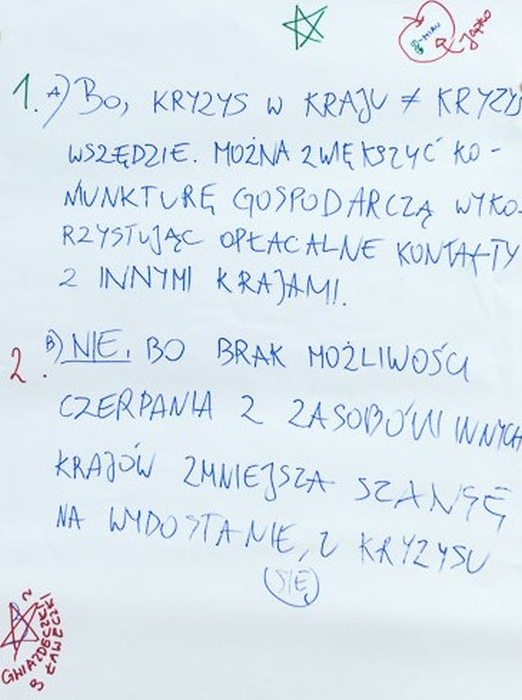 Japko
1. A) BO, KRYZYS W KRAJU ≠ KRYZYS
WSZĘDZIE. MOŻNA ZWIĘKSZYĆ KO-
NIUNKTURĘ GOSPODARCZĄ WYKO-
RZYSTUJĄC OPŁACALNE KONTAKTY
Z INNYMI KRAJAMI.
2. B) NIE, BO BRAK MOŻLIWOŚCI
CZERPANIA Z ZASOBÓW INNYCH
KRAJÓW ZMNIEJSZA SZANSĘ
NA WYDOSTANIE, Z KRYZYSU
SIĘ
GWIAZDECZKI
Z
ŁAWECZKI